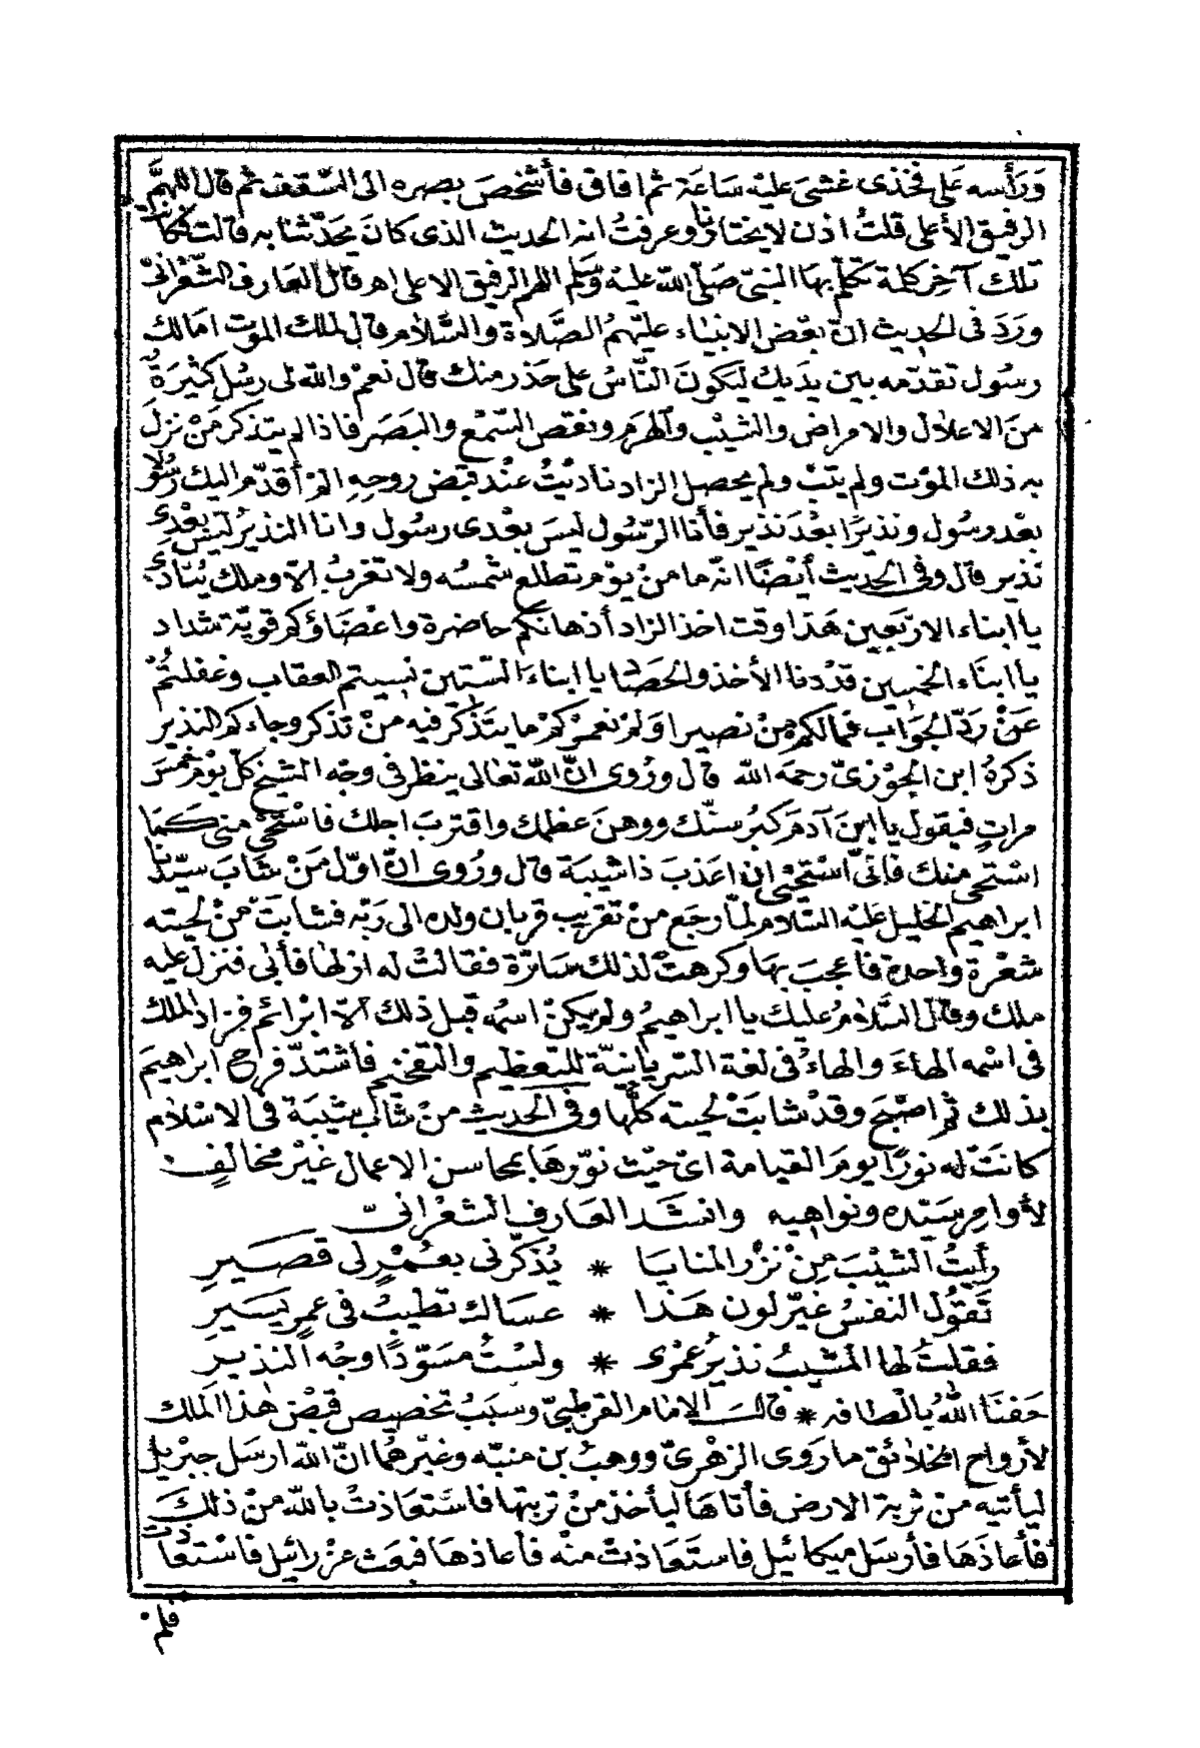 وَرَأسه عَلى فخذى غشىَ عليْه سَاعَة ثم افاق فأشخصَ بصره الى السّقف ثم قال اللهمّ
الرفيق الأعلى قلتُ اذن لا يختارنا وعرفتُ انه الحديث الذى كانَ يحَدّثنا به قالت فكانت
تلك آخِر كلمة تكلّم بهَا النبىّ صَلّى الله عليْه وَسَلم اللهم الرفيق الاعلى اهـ قال العَارف الشّعْرانىّ
ورَدَ فى الحَديث انّ بعْض الانبيَاء عليْهمُ الصَّلاة والسَّلام قال لملك الموت امَا لك
رسُول تقدّمه بين يدَيك ليَكونَ النّاسُ على حَذر منك قال نعمْ والله لى رسُل كثيرَة
منَ الاعلال والامراض والشيْب وآلهرَم ونقص السّمْع والبَصَر فاذا لم يتذكر مَنْ نزلَ
به ذلك الموْت ولم يتبْ ولم يحصل الزاد ناديْتُ عنْد قبض روحِهِ المْ أقدّم اليك رسُولا
بعْد رسُول ونذيرًا بعْدَ نذير فأنا الرّسُول ليسَ بعْدى رسُول وانا النذيرُ ليْس بعْدى
نذير قال وفى الحديث أيْضًا انّه ما منْ يوْم تطلع شمسُه ولا تغربُ الاّ وملك يُنادى
يا ابناء الاربَعين هَذا وقت اخذ الزاد أذهانكم حاضرة واعْضاؤكم قويّة شداد
يا ابنَاء الخمسين قدْ دنا الأخذ والحَصَاد يا ابناءَ السّتين نسيتم العقاب وغفلتُمْ
عَنْ رَدّ الجوَاب فمالكم منْ نصير اوَلمْ نعمرْكمْ ما يتَذكّر فيه منْ تذكر وجاءكم النذير
ذكرهُ ابن الجوْزىّ رحمَه الله قال ورُوى انّ الله تعَالى ينظر فى وجْه الشيخ كلّ يوْم خمسَ
مراتٍ فيقول يا ابنَ آدمَ كبرُ سنّك ووهنَ عظمك واقتربَ اجلك فاسْتحْى منى كمَا
اسْتحى منك فانىّ اسْتحْيى ان اعَذبَ ذا شيبَة قال ورُوى انّ اوّل مَنْ شابَ سيّدنا
ابراهيم الخليل عَليْه السّلام لمّا رجَع منْ تقريب قربان ولده الى رَبّه فشابَتْ منْ لحيته
شعْرة واحدة فاعجبَ بهَا وكرهتْ لذلك سَارّة فقالتْ له ازلها فأبى فنزل عليه
ملك وقال السَّلامُ عليك يا ابراهيمُ ولم يكنْ اسمُه قبل ذلك الاّ ابْرائم فزادَ الملك
فى اسْمه الهاءَ والهاءُ فى لغة السّريانيّة للتّعْظيم والتفخيم فاشتدّ فرح ابراهيمَ
بذلك ثم اصْبحَ وقدْ شابَتْ لحيته كلّها وفى الحَديث منْ شابَ شيْبَة فى الاسْلام
كانتْ له نورًا يومَ القيامة اىْ حيْث نوّرهَا بمحاسن الاعمال غيْر مخالفٍ
لأوامِر سَيّده ونواهيه وانشدَ العَارف الشعْرانىّ
رأيتُ الشيْبَ مِنْ نزُر المنايَا * يُذكّرنى بعُمْرٍ لى قصَيرِ
تَقوُل النفسُ غيّر لون هَذا * عسَاك تطيبُ فى عمرٍ يَسَيرِ
فقلتُ لها المشيبُ نذيرُ عمْرى * ولسْتُ مسَوّدًا وجْه النذيرِ
حَفنَا اللهُ بالْطافه * قالَ الامام القرطبىّ وسَبَبُ تخصيص قبْض هٰذا الملك
لأرواح الخلائق ما رَوى الزهْرىّ ووهبُ بن منبّه وغيْرهُما انّ الله ارسَل جبْريل
ليأتيه منْ تربة الارض فأتاهَا ليأخذ منْ تربتها فاسْتعَاذتْ بالله منْ ذلكَ
فأعاذهَا فأرسَل ميكائيل فاستعَاذتْ منْه فأعاذهَا فبعَث عزْرائيل فاسْتعَاذت
فلم